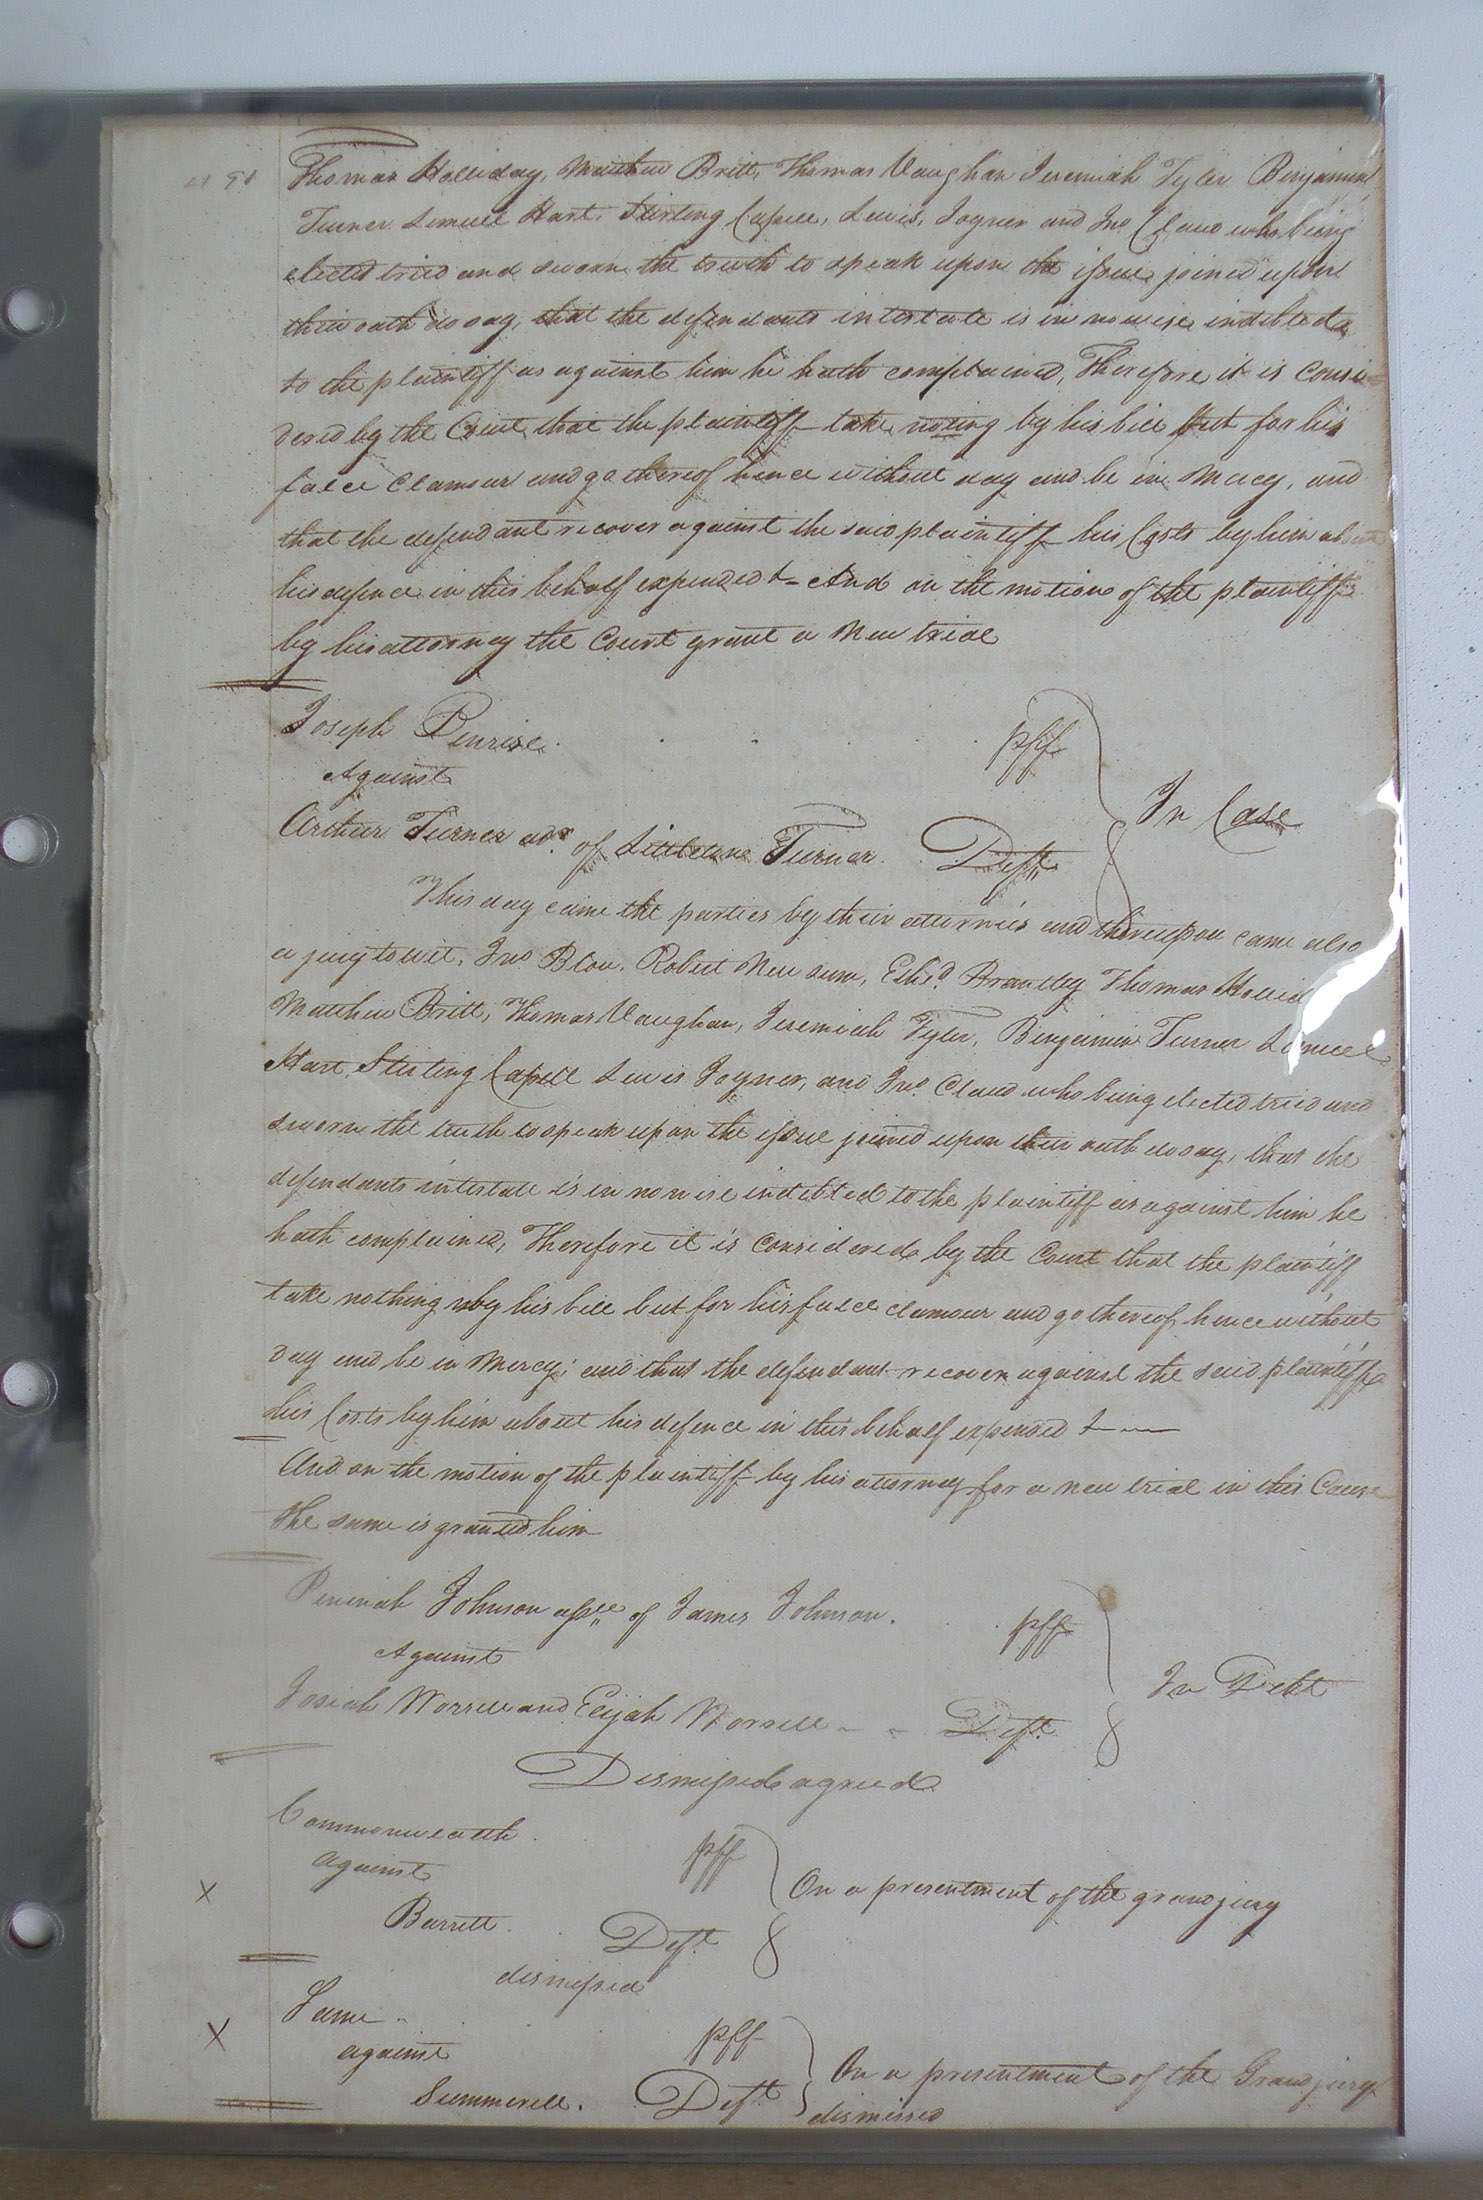 Thomas Holliday, Matthew Britt, Thomas Vaughan Jeremiah Tyler Benjamin
Turner Lemuel Hart, Stirling Capell, Lewis, Joyner and Jno Claud who being
elected tried and sworn the truth to speak upon the issue joined upon
their oath do say, that the defendants intestate is in no wise indebted
to the plaintiff as against him he hath complained, Therefore it is Consi
dered by the Court that the plaintiff take noting by his bill but for his
false Clamour and go thereof hence without day and be in Mercy, and
that the defendant recover against the said plaintiff his Costs by him about
his defence in this behalf expended &- And on the motion of the plaintiff
by his attorney the Court grant a New trial
Joseph Penrise plff
Against
In Case
Arthur Turner adr. of Littleton Turner Deft.
This day came the parties by their attornies and thereupon came also
a jury to wit, Jno. Blow, Robert Newsum, Ethd. Brantley Thomas Hollid
Matthew Britt, Thomas Vaughan, Jeremiah Tyler, Benjamin Turner Lemuel
Hart, Stirling Capell Lewis Joyner, and Jno. Claud who being elected tried and
sworn the truth to speak upon the issue joined upon their oath do say, that the
defendants intestate is in no wise indebted to the plaintiff as against him he
hath complained, Therefore it is Considered by the Court that the plaintiff
take nothing by his bill but for his false clamour and go thereof hence without
Day and be in Mercy; and that the defendant recover against the said plaintiff
his Costs by him about his defence in this behalf expended &
And on the motion of the plaintiff by his attorney for a new trial in this Cause
the same is granted him
Peninah Johnson assee of James Johnson. plff
Against
In Debt
Josiah Worrell and Elijah Worrell Deft.
Dismissed agreed
Commonwealth plff
against
On a presentment of the grand jury
Barrett. Deft
dismissed
Same plff
against
On a presentment of the Grand jury
Summerell. Deft
dismissed